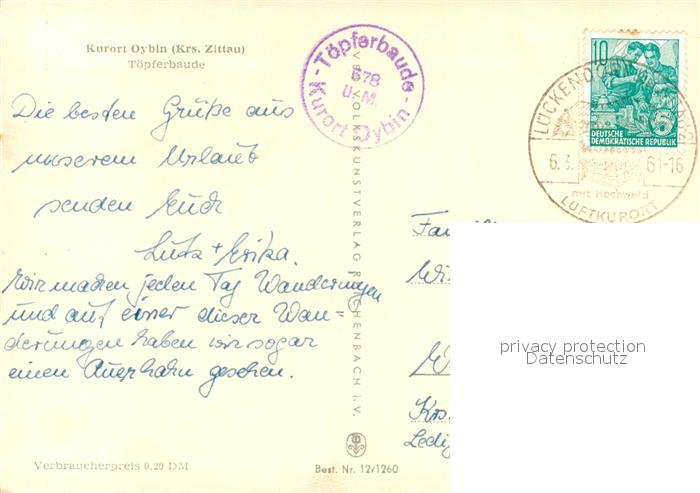 Kurort Oybin (Krs. Zittau)
Töpferbaude
Die besten Grüße aus
unserem Urlaub
senden Euch
Lutz + Erika.
Wir machen jeden Tag Wanderungen
und auf einer dieser Wan=
derungen haben wir sogar
einen Auerhahn gesehen.
Verbraucherpreis 0,20 DM
- Töpferbaude -
578
ü. M.
Kurort Oybin
VEB VOLKSKUNSTVERLAG REICHENBACH i. V.
Best. Nr. 12/1260
10
DEUTSCHE
DEMOKRATISCHE REPUBLIK
LÜCKENDORF
6.3. 61-16
mit Hochwald
LUFTKURORT
Fam
Krs.
privacy protection
Datenschutz